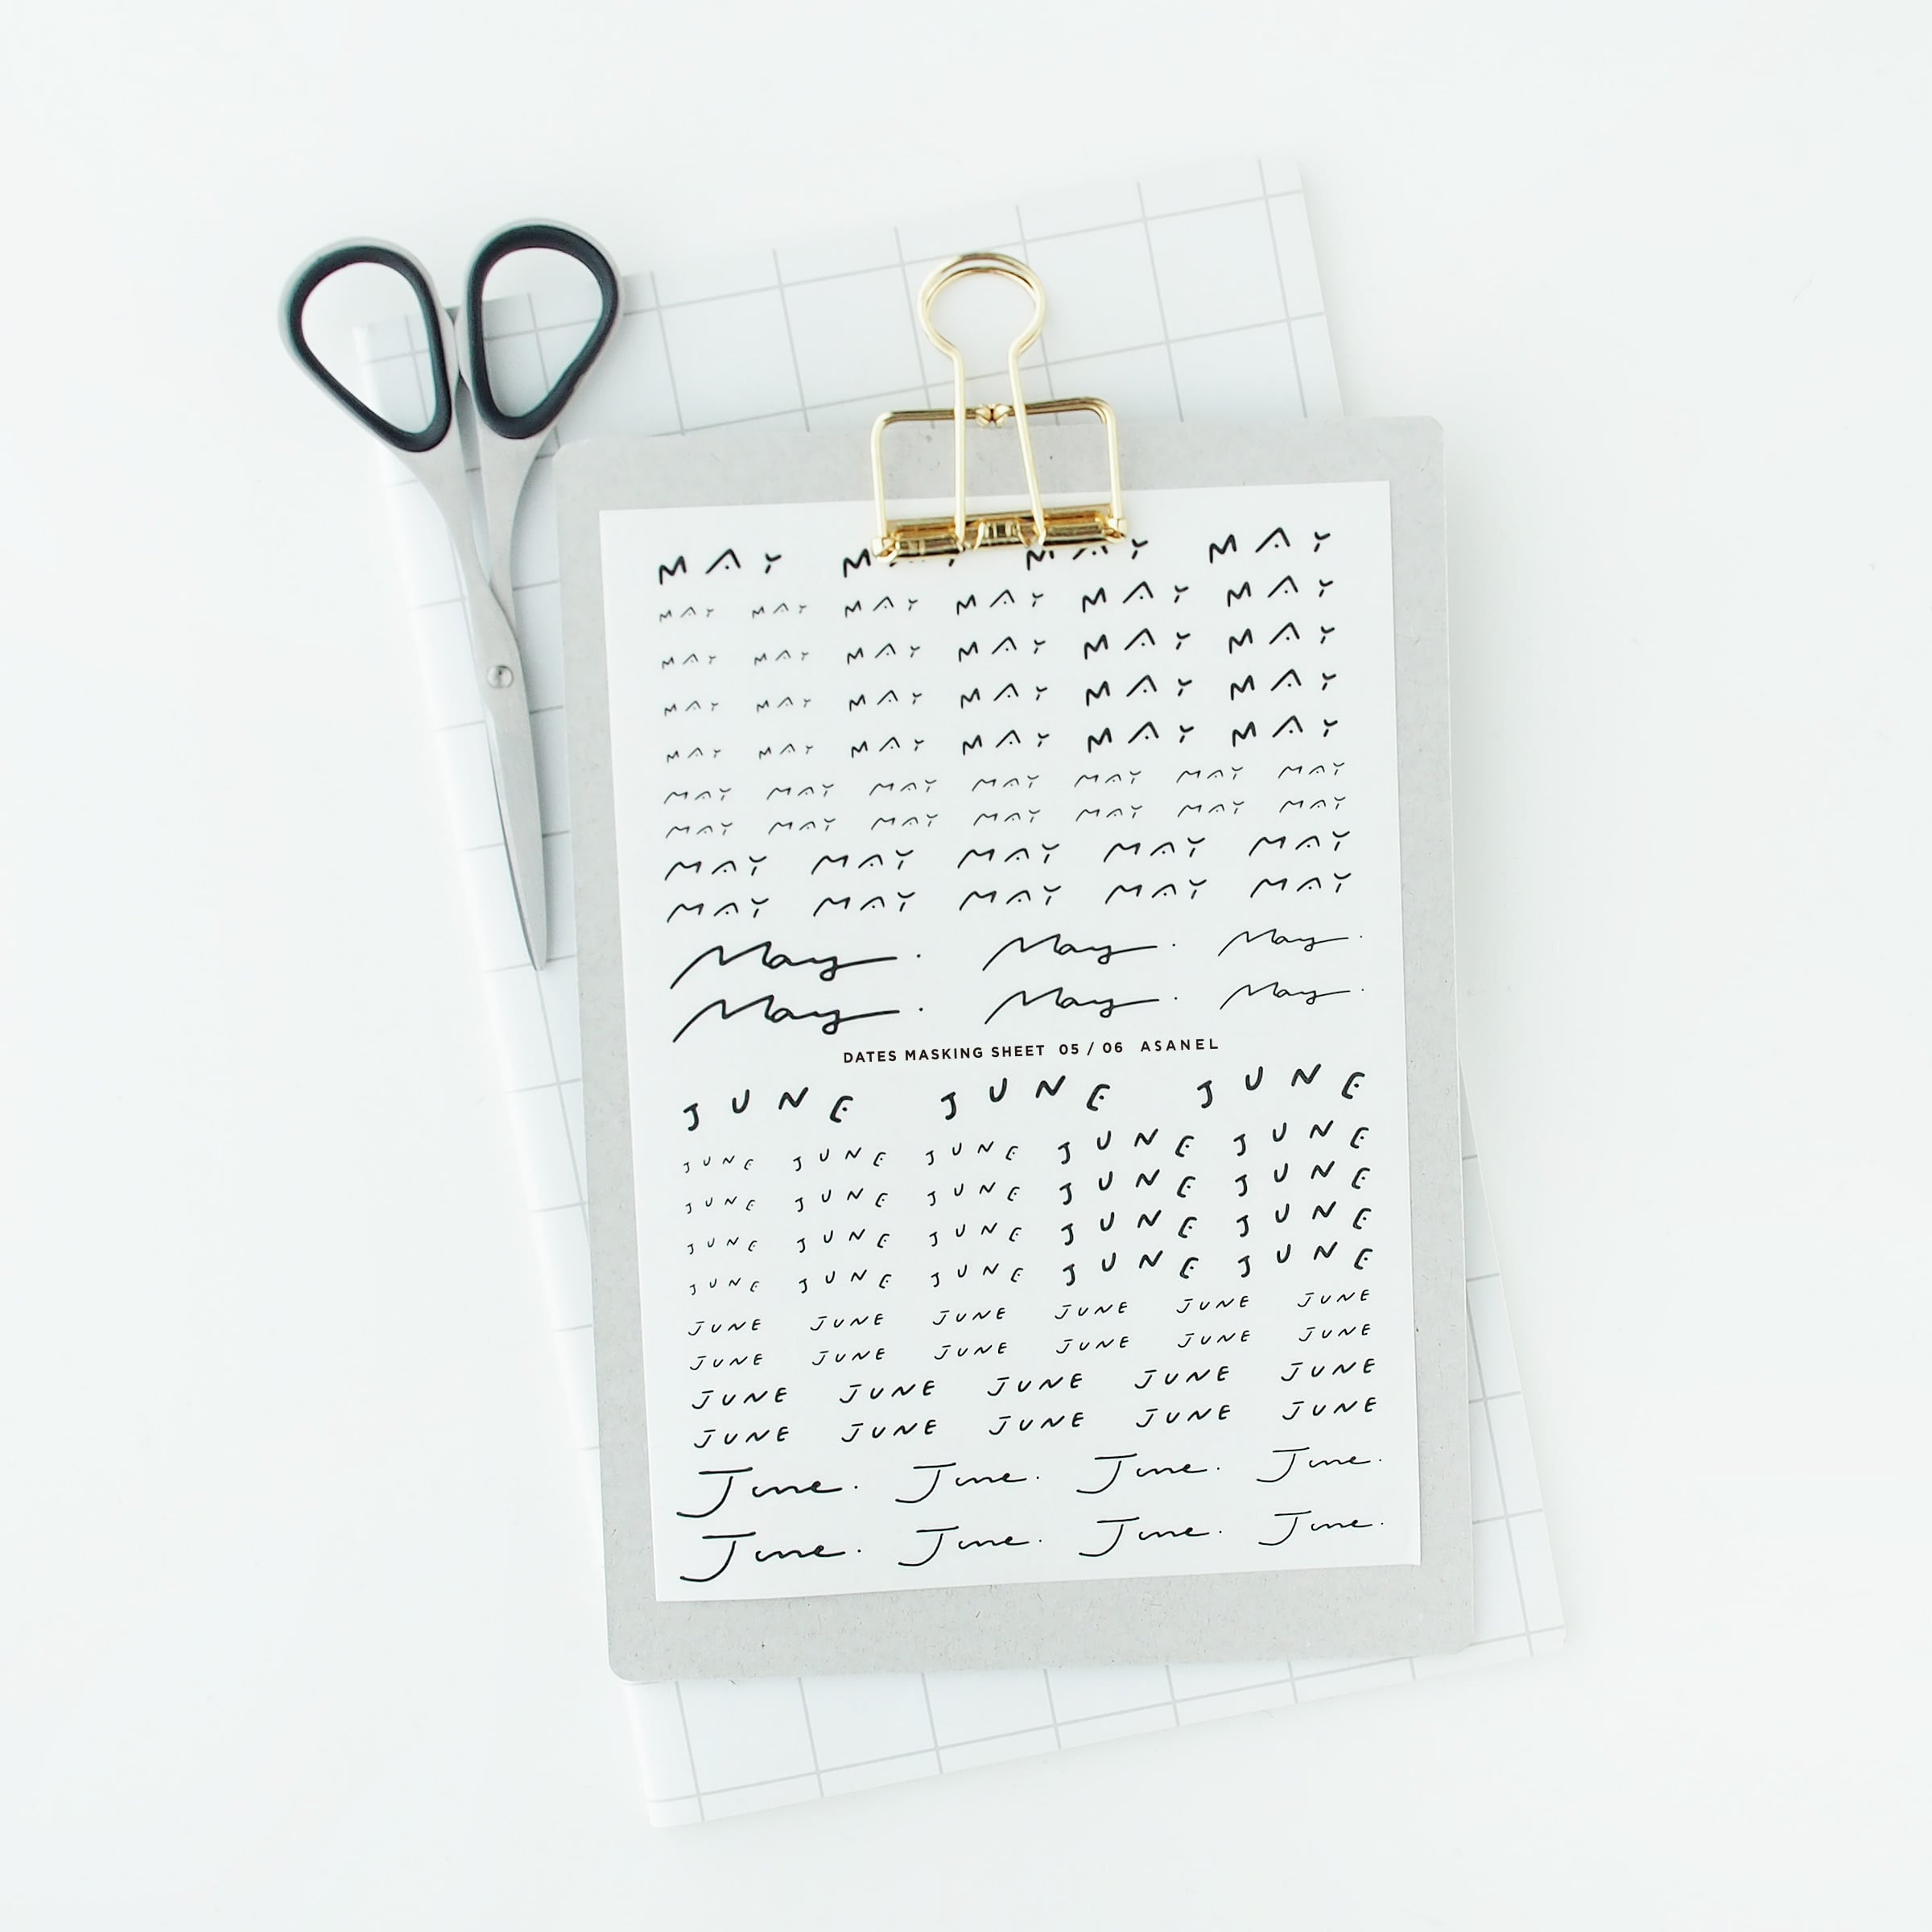 MAY MAY MAY MAY
MAY MAY MAY MAY MAY MAY
MAY MAY MAY MAY MAY MAY
MAY MAY MAY MAY MAY MAY
MAY MAY MAY MAY MAY MAY
MAY MAY MAY MAY MAY MAY MAY
MAY MAY MAY MAY MAY MAY MAY
MAY MAY MAY MAY MAY
MAY MAY MAY MAY MAY
May. May. May.
May. May. May.
DATES MASKING SHEET 05 / 06 ASANEL
JUNE JUNE JUNE
JUNE JUNE JUNE JUNE JUNE
JUNE JUNE JUNE JUNE JUNE
JUNE JUNE JUNE JUNE JUNE
JUNE JUNE JUNE JUNE JUNE
JUNE JUNE JUNE JUNE JUNE JUNE
JUNE JUNE JUNE JUNE JUNE JUNE
JUNE JUNE JUNE JUNE JUNE
JUNE JUNE JUNE JUNE JUNE
June. June. June. June.
June. June. June. June.